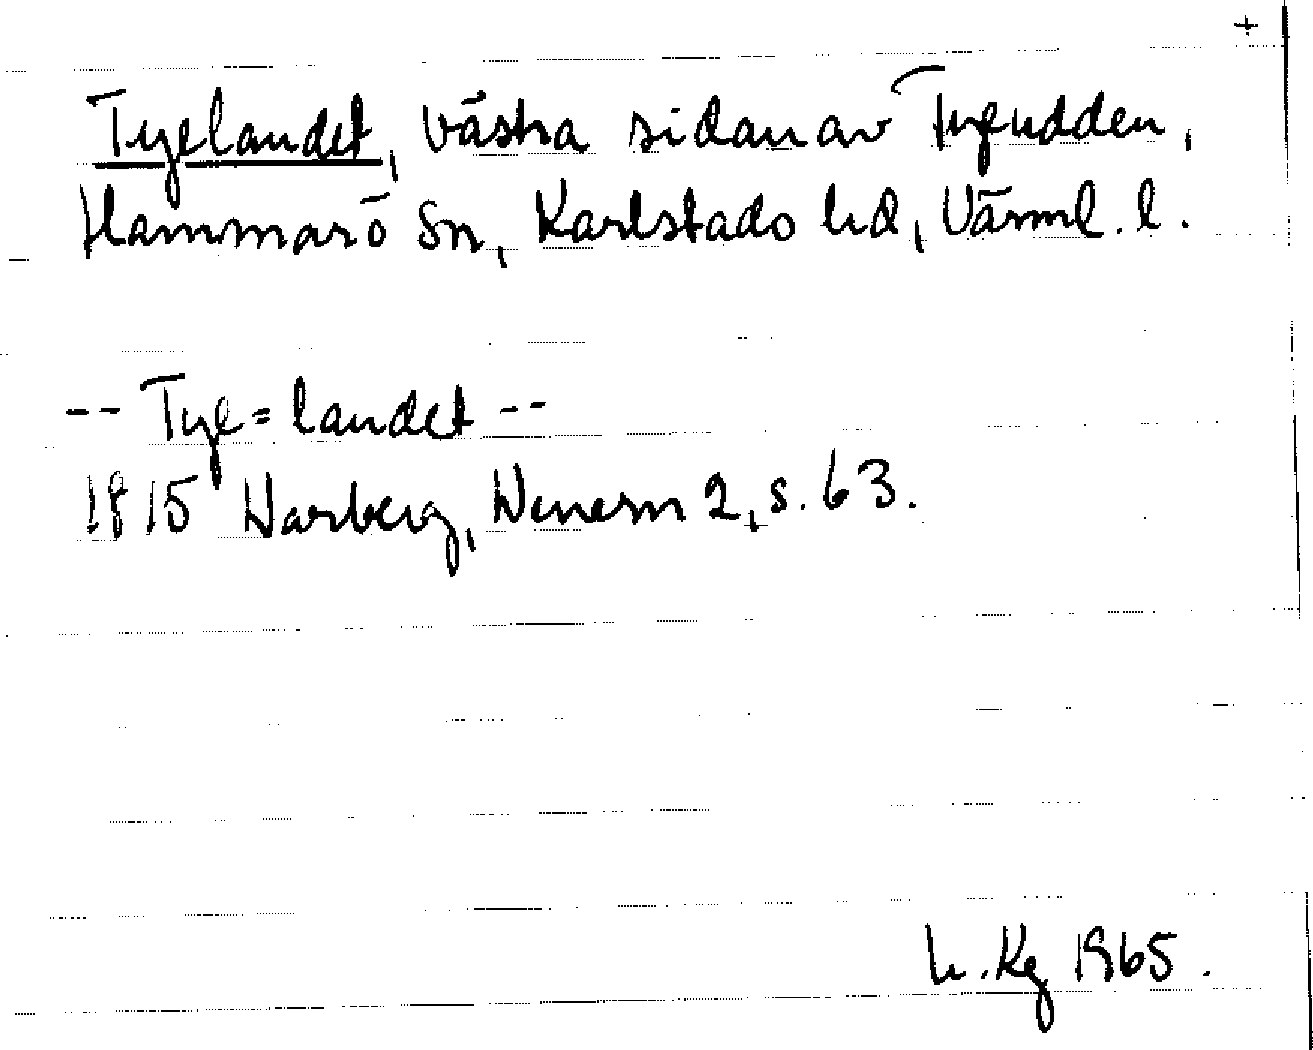 +
Tyelandet, västra sidan av Tyeudden,
Hammarö sn, Karlstads hd, Värml. l.
-- Tye=landet --
1815 Warberg, Wenern 2, s. 63.
L. Kg 1965.